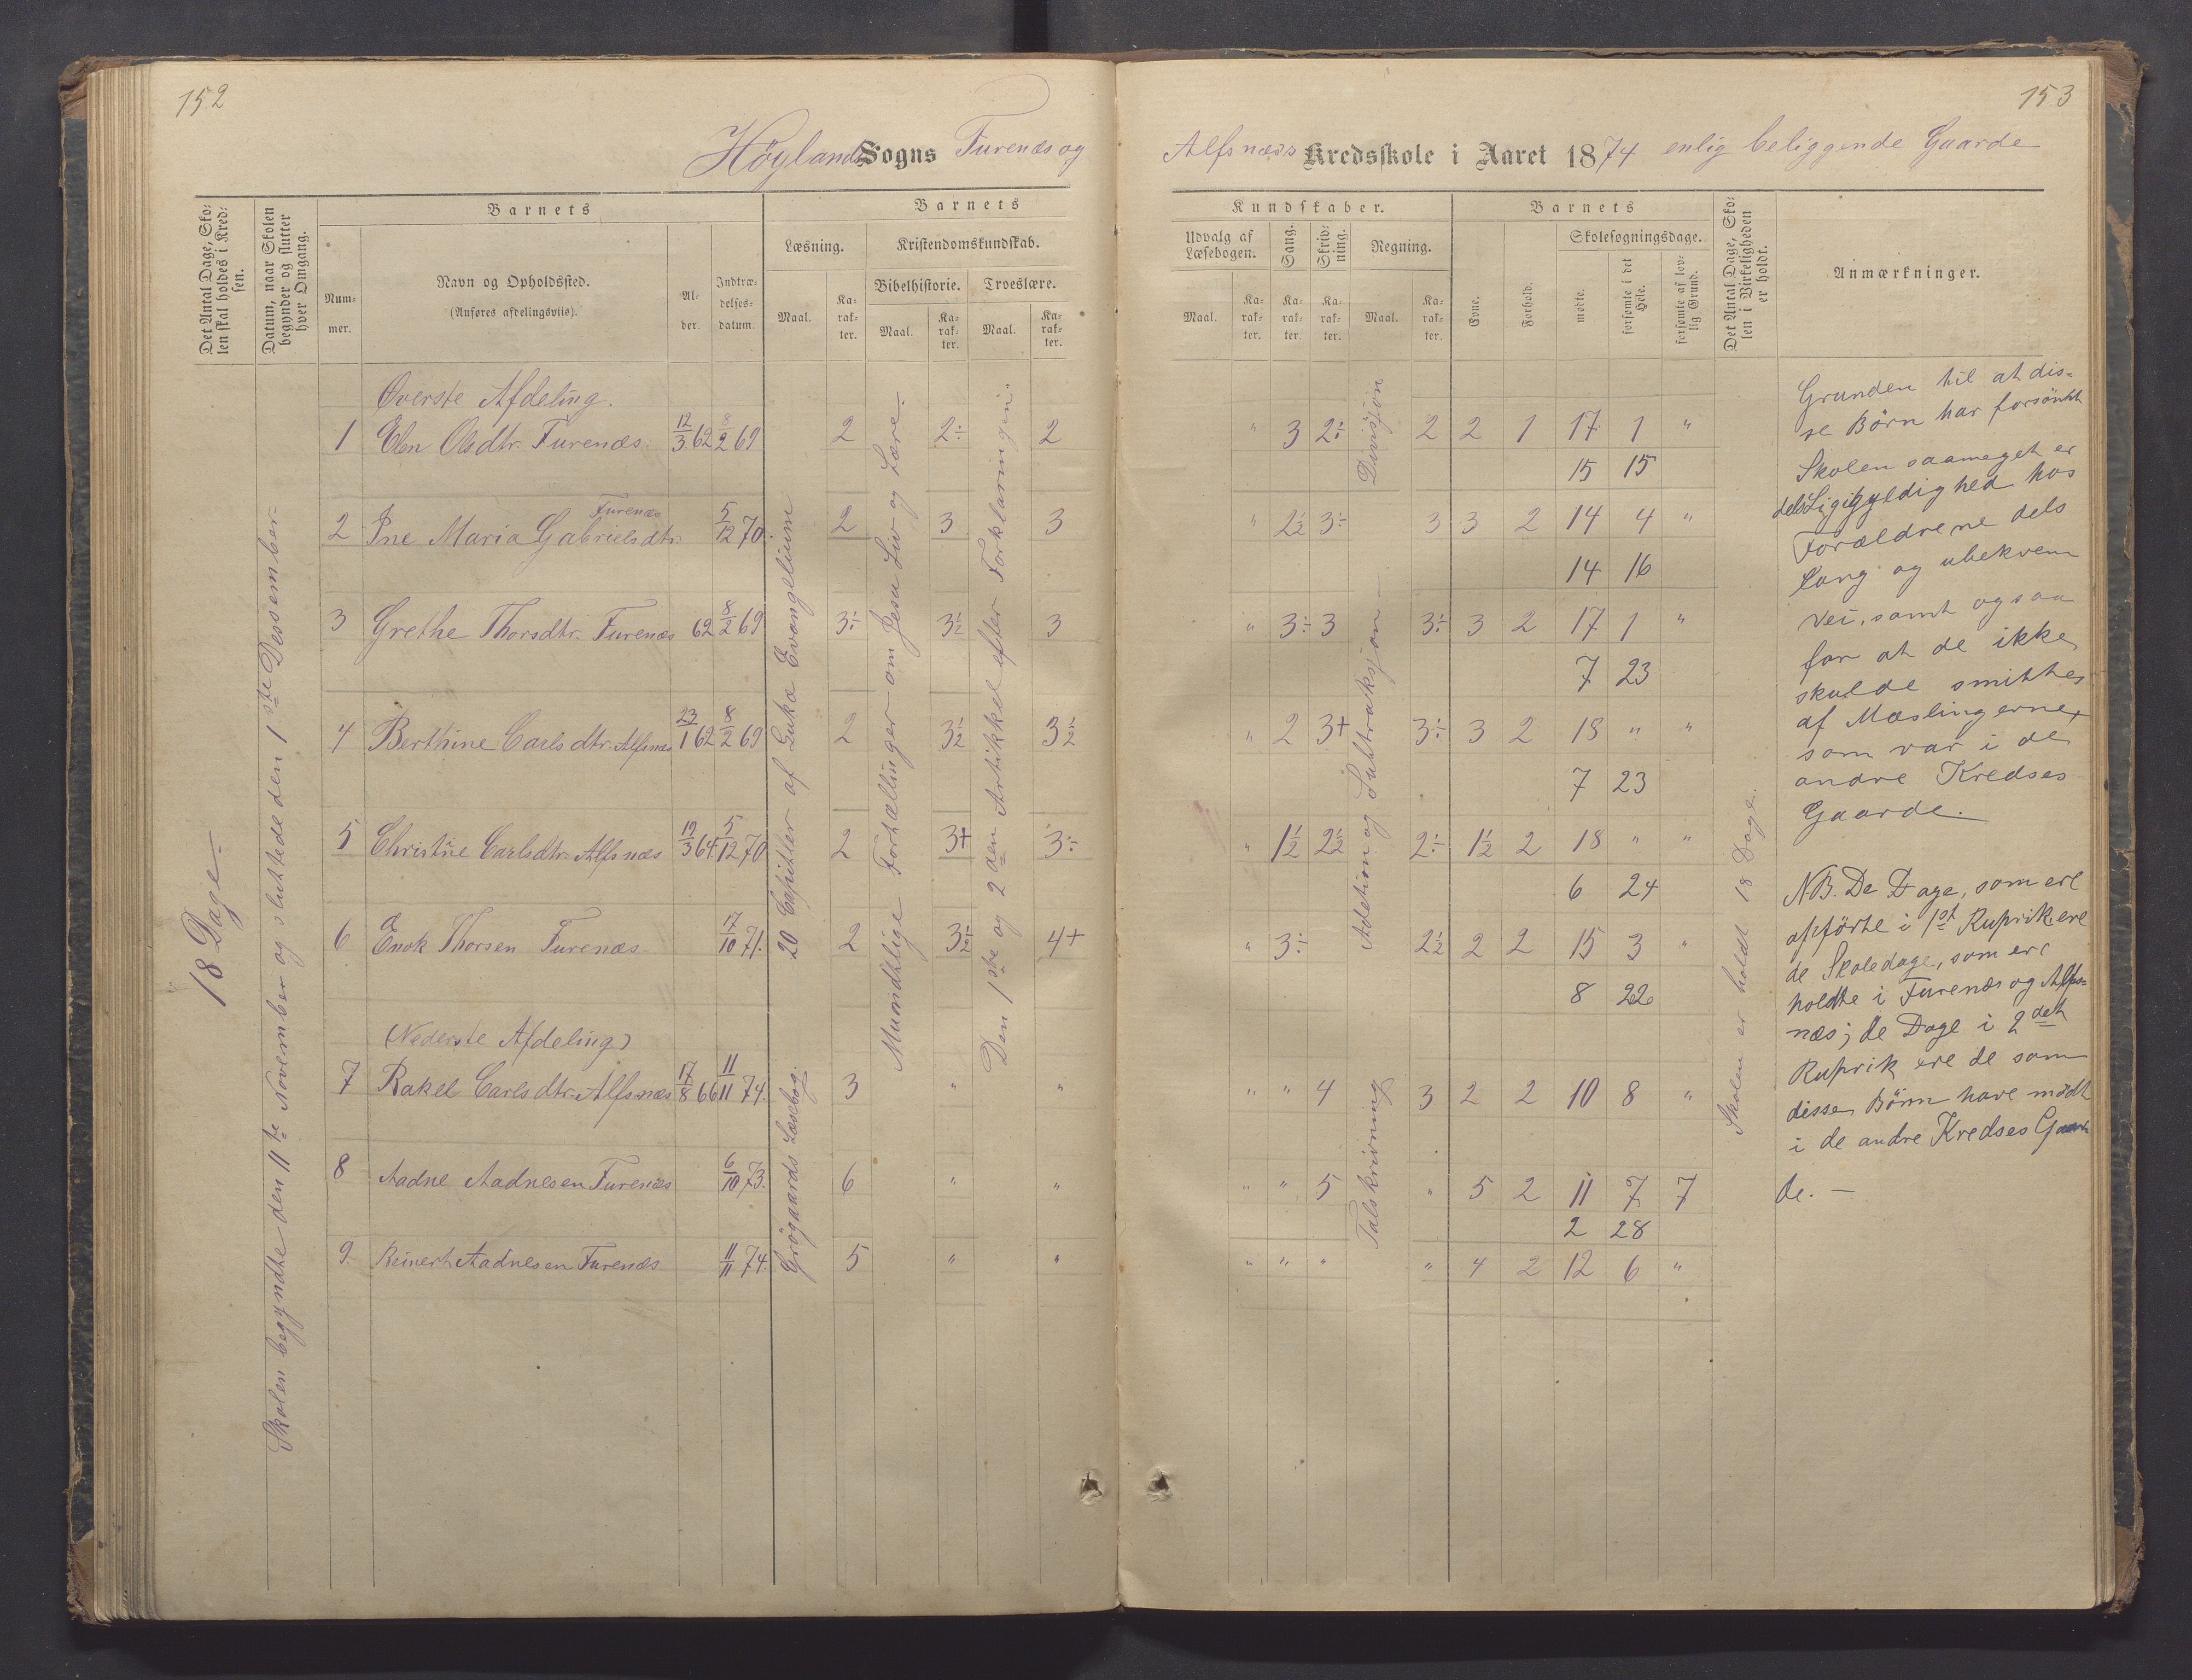 152
Höylands Sogns Furenæs og
Det Antal Dage, Sko-
len skal holdes i Kred-
sen.
Datum, naar Skolen
begynder og slutter
hver Omgang.
Barnets
Num-
mer.
Navn og Opholdssted.
(Anføres afdelingsviis).
Al-
der.
Indtræ-
delses-
datum.
Barnets
Læsning.
Maal.
Ka-
rak-
ter.
Kristendomskundskab.
Bibelhistorie.
Maal.
Ka-
rak-
ter.
Troeslære.
Maal.
Ka-
rak-
ter.
18 Dage
Skolen begyndte den 11te November og sluttede den 1ste Dessember
20 Capitler af Luka Evangelium
Grögaards Læsebog.
Mundtlige Fortællinger om Jesu Liv og Lære.
Den 1ste og 2den Artikkel efter Forklaringen
Överste Afdeling.
1 Elen Olsdtr. Furenæs. 12/3 62 8/2 69 2 2÷ 2
Furenæs
2 Ine Maria Gabrielsdtr. 5/12 70. 2 3 3
3 Grethe Thorsdtr. Furenæs 62 8/2 69 3÷ 3½ 3
4 Berthine Carlsdtr. Alfsnæs 23/1 62 8/2 69 2 3½ 3½
5 Christine Carlsdtr. Alfsnæs 19/3 64. 5/12 70 2 3+ 3÷
6 Enok Thorsen Furenæs 17/10 71. 2 3½ 4+
(Nederste Afdeling)
7 Rakel Carlsdtr. Alfsnæs 17/8 66 11/11 74. 3 " "
8 Aadne Aadnesen Furenæs 6/10 73. 6 " "
9 Reinert Aadnesen Furenæs 11/11 74. 5 " "
153
Alfsnæss Kredsskole i Aaret 1874 enlig beliggende Gaarde
Kundskaber.
Udvalg af
Læsebogen.
Maal.
Ka-
rak-
ter.
Sang.
Ka-
rak-
ter.
Skriv-
ning.
Ka-
rak-
ter.
Regning.
Maal.
Ka-
rak-
ter.
Barnets
Evne.
Forhold.
Skolesøgningsdage.
mødte.
forsømte i det
Hele.
forsømte af lov-
lig Grund.
Det Antal Dage, Sko-
len i Virkeligheden
er holdt.
Anmærkninger.
Divisjon
Adetion og Subtraksjon
Talskrivning
" 3 2÷ 2 2 1 17 1 "
15 15
" 2½ 3÷ 3 3 2 14 4 "
14 16
" 3÷ 3 3÷ 3 2 17 1 "
7 23
" 2 3+ 3÷ 3 2 18 " "
7 23
" 1½ 2½ 2÷ 1½ 2 18 " "
6 24
" 3÷ 2½ 2 2 15 3 "
8 22
" " 4 3 2 2 10 8 "
" " 5 " 5 2 11 7 7
2 28
" " " " 4 2 12 6 "
Skolen er holdt 18 Dage.
Grunden til at dis-
se Börn har forsömt
Skolen saameget er
dels Ligegyldighed hos
Forældrene dels
lang og ubekvem
Vei, samt ogsaa
for at de ikke
skulde smittes
af Mæslingerne,
som var i de
andre Kredses
Gaarde.
NB. De Dage, som ere
opförte i 1st Ruprik ere
de Skoledage, som ere
holdte i Furenæs og Alfs-
næs; de Dage i 2det
Ruprik ere de som
disse Börn have mödt
i de andre Kredses Gaar
de. —